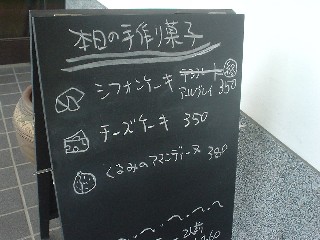 本日の手作り菓子
シフォンケーキ
アールグレイ 350
チーズケーキ 350
くるみのアマンディーヌ 380